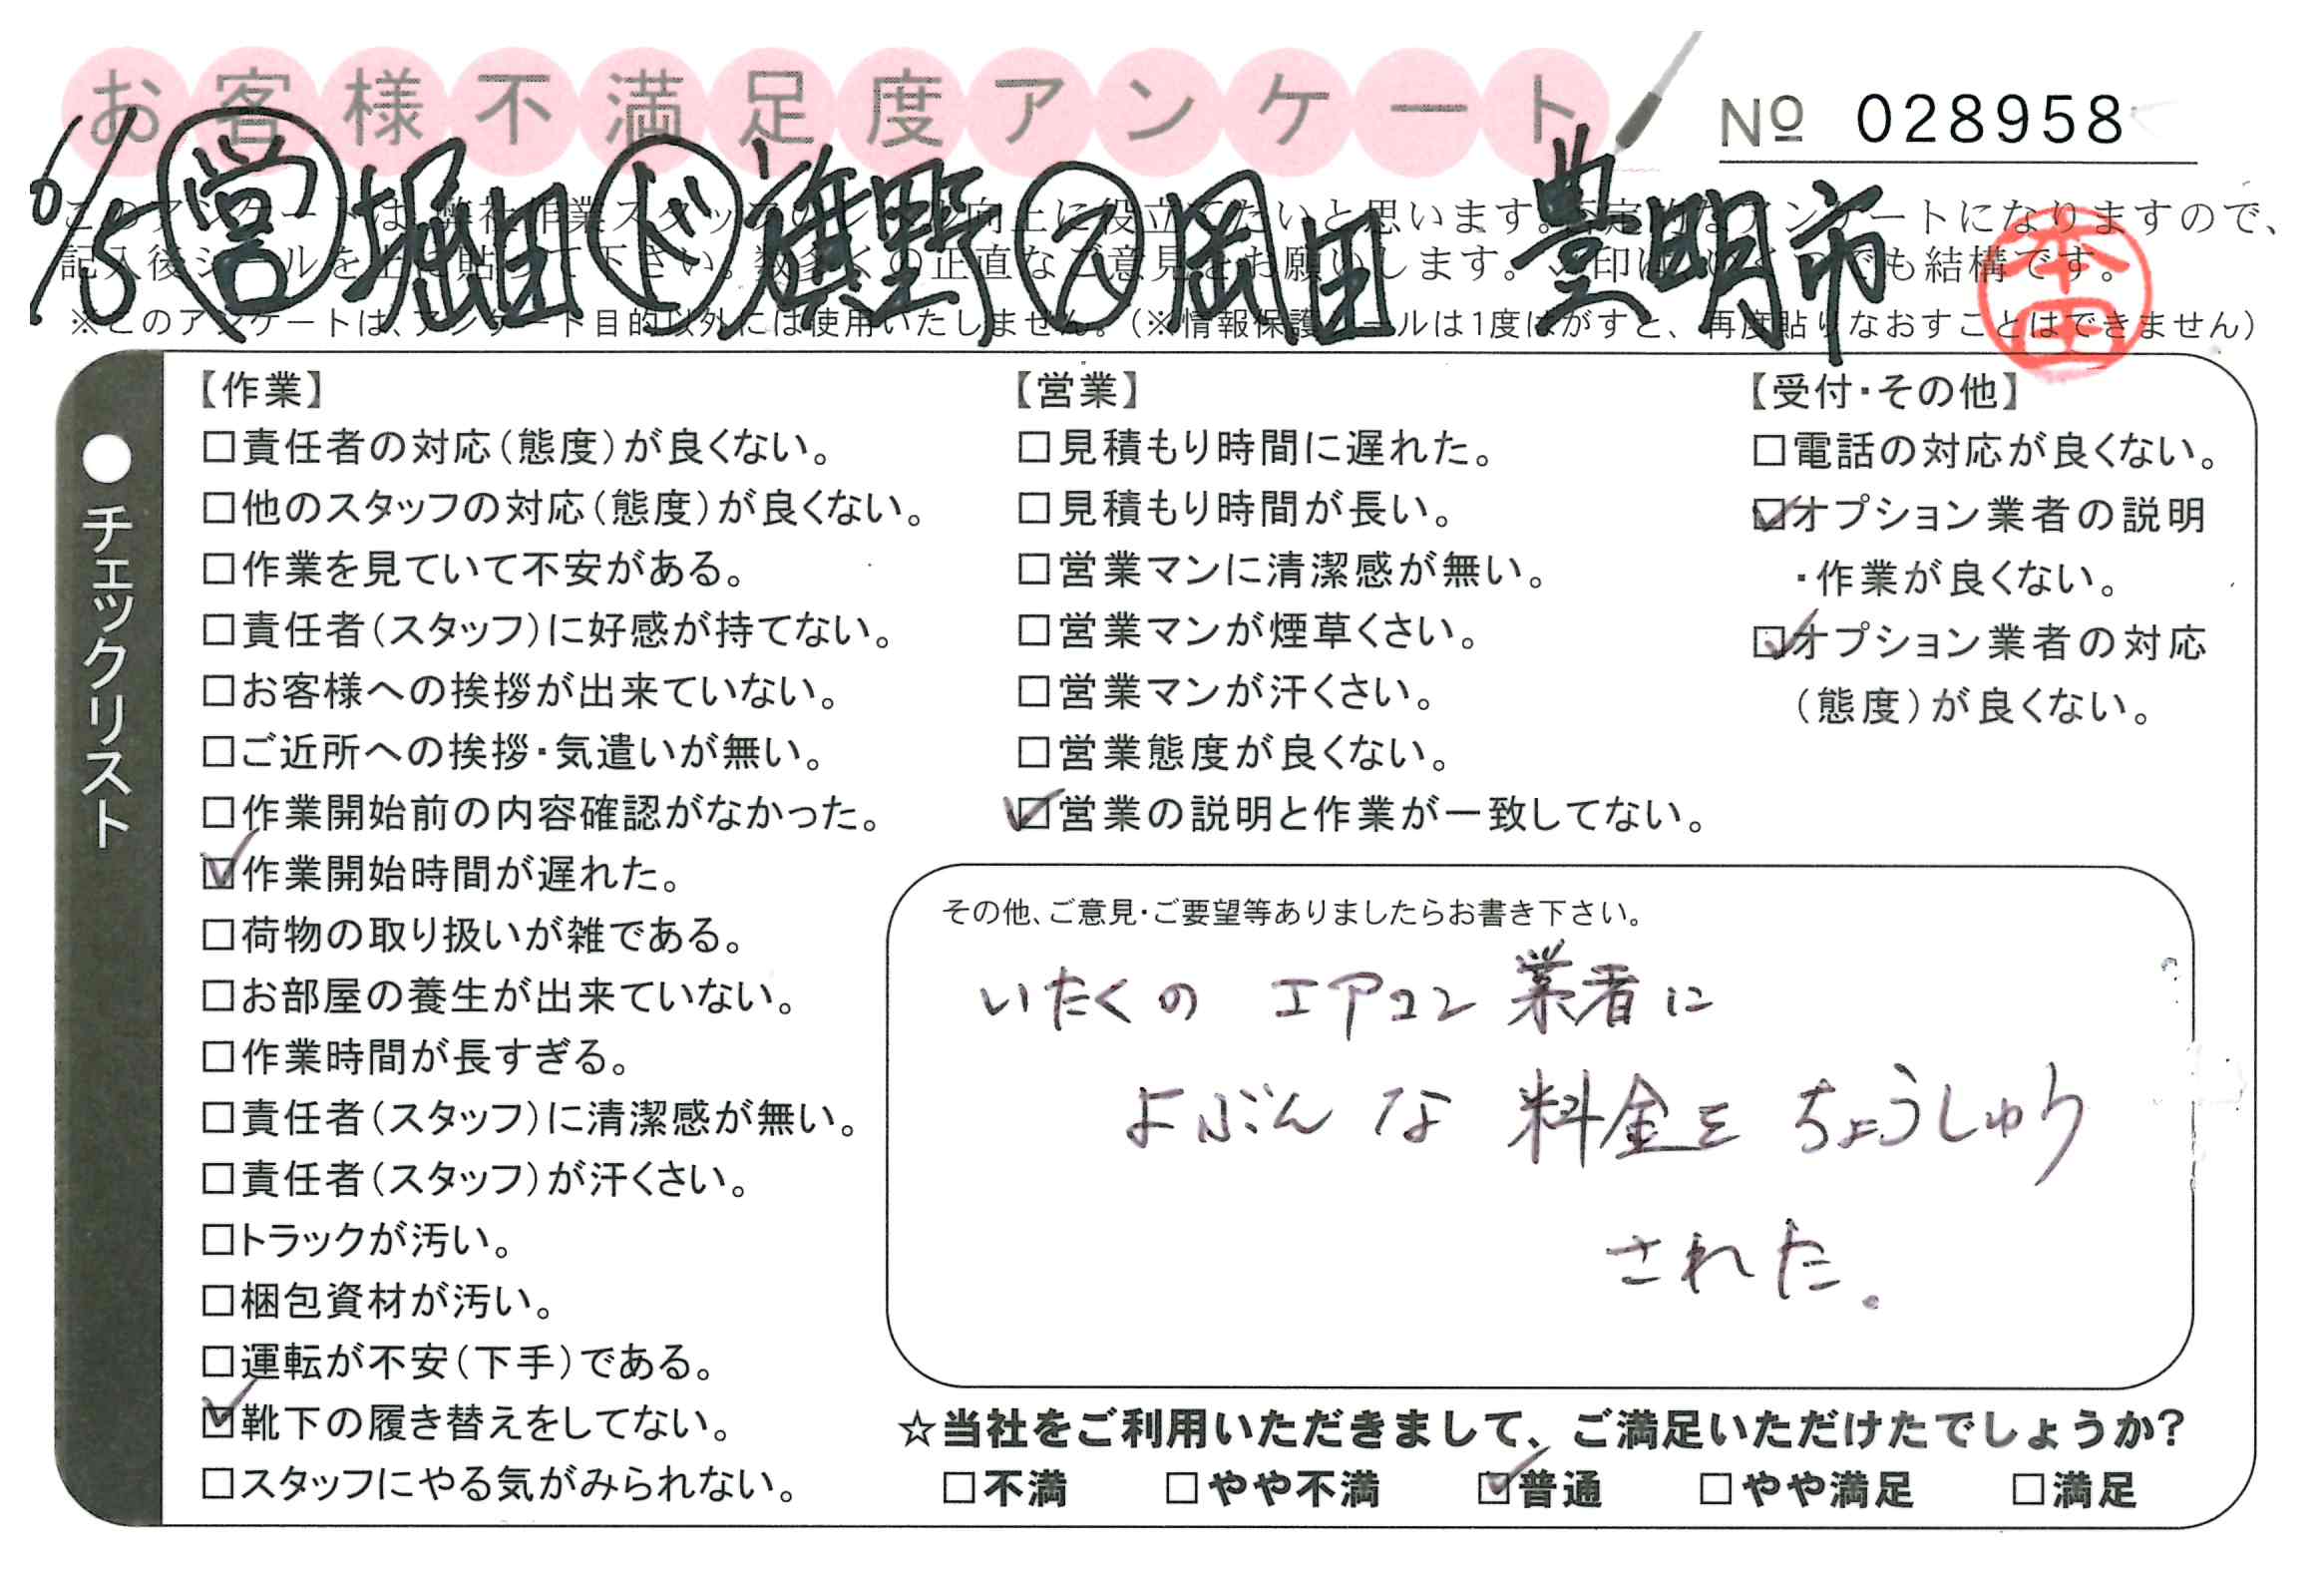 お客様不満足度アンケート
№ 028958
6/5 営 堀田 ド 旗野 ス 岡田 豊明市
本田
記入後シールを上に貼って下さい。数多くの正直なご意見をお願いします。
※このアンケートは、アンケート目的以外には使用いたしません。(※情報保護シールは1度はがすと、再度貼りなおすことはできません)
●チェックリスト
【作業】
□責任者の対応(態度)が良くない。
□他のスタッフの対応(態度)が良くない。
□作業を見ていて不安がある。
□責任者(スタッフ)に好感が持てない。
□お客様への挨拶が出来ていない。
□ご近所への挨拶・気遣いが無い。
□作業開始前の内容確認がなかった。
☑作業開始時間が遅れた。
□荷物の取り扱いが雑である。
□お部屋の養生が出来ていない。
□作業時間が長すぎる。
□責任者(スタッフ)に清潔感が無い。
□責任者(スタッフ)が汗くさい。
□トラックが汚い。
□梱包資材が汚い。
□運転が不安(下手)である。
☑靴下の履き替えをしてない。
□スタッフにやる気がみられない。
【営業】
□見積もり時間に遅れた。
□見積もり時間が長い。
□営業マンに清潔感が無い。
□営業マンが煙草くさい。
□営業マンが汗くさい。
□営業態度が良くない。
☑営業の説明と作業が一致してない。
【受付・その他】
□電話の対応が良くない。
☑オプション業者の説明
・作業が良くない。
☑オプション業者の対応
(態度)が良くない。
その他、ご意見・ご要望等ありましたらお書き下さい。
いたくの エアコン業者に
よぶんな 料金を ちょうしゅう
された。
☆当社をご利用いただきまして、ご満足いただけたでしょうか?
□不満 □やや不満 ☑普通 □やや満足 □満足